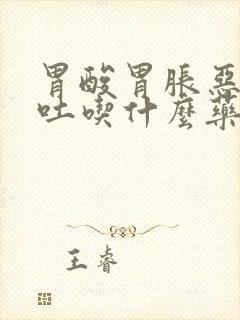 胃酸胃脹惡
吐喫什麼藥
王睿